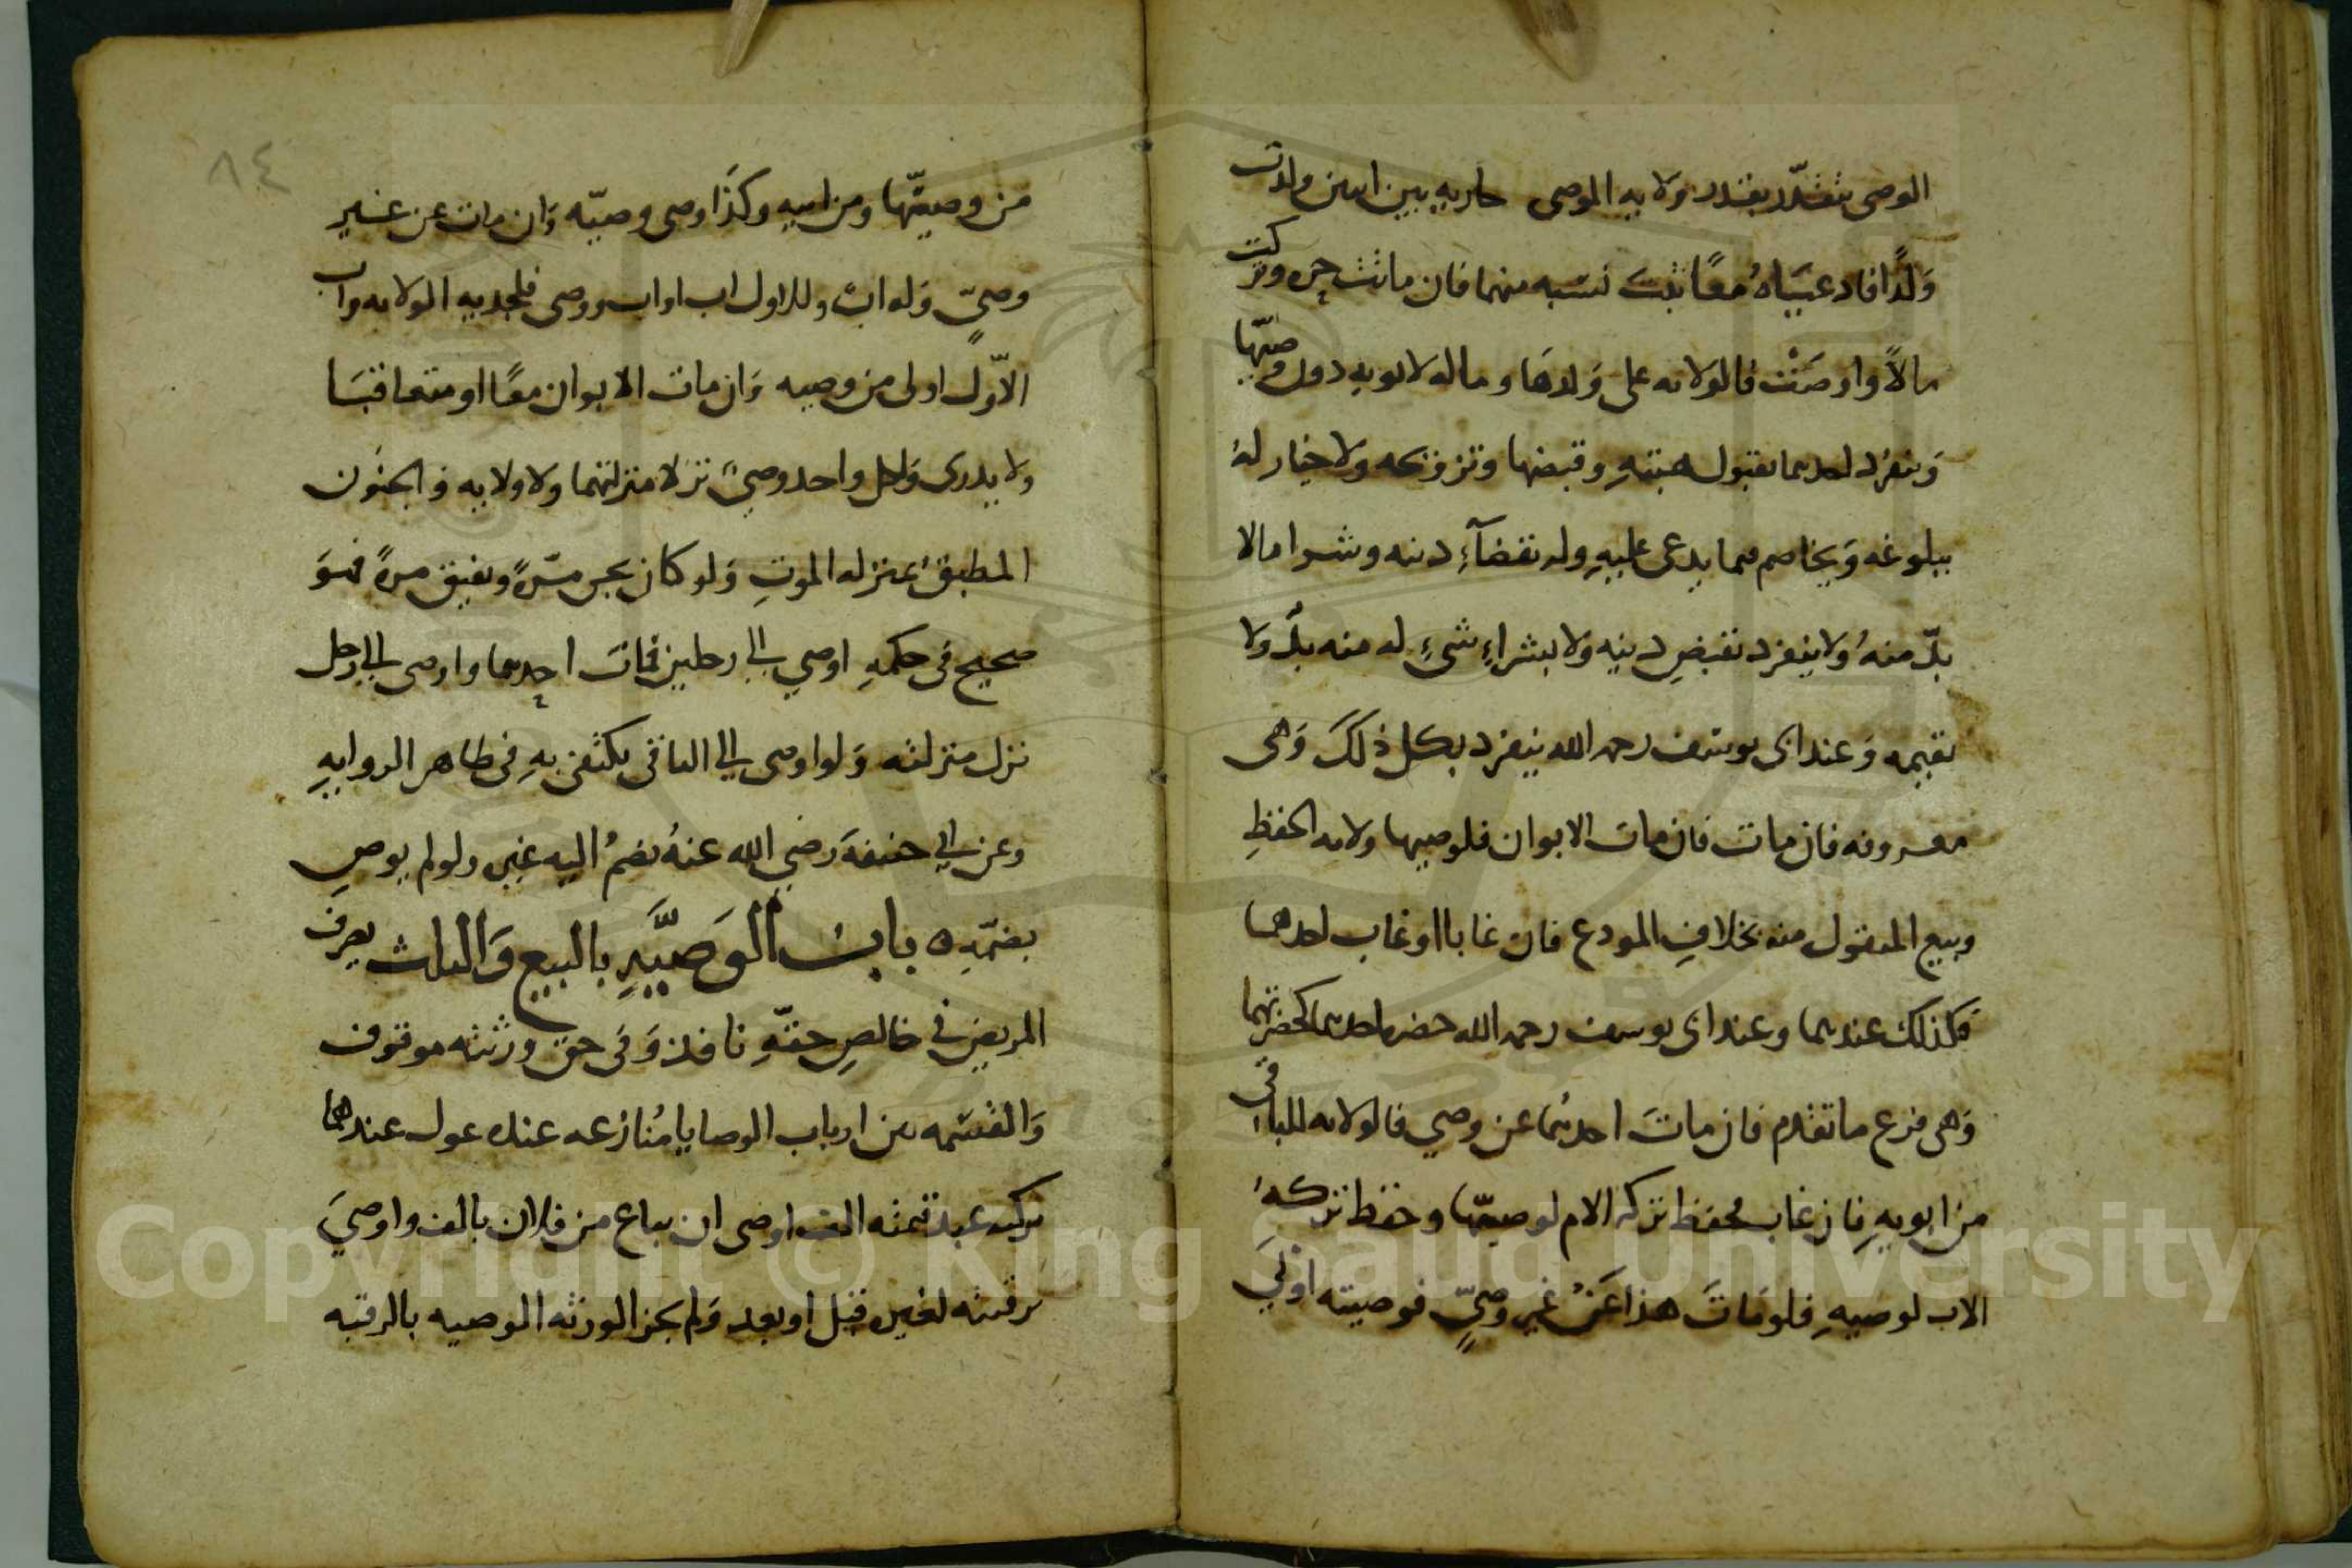 الوصى يتقدر بقدر ولايه الموصى جاريه بين اثنين ولدت
وَلدًا فادعيَاهُ معًا ثبت نسبه منهما فان ماتت حره وتركت
مالاً واوصَتْ فالولايه على وَلدهَا وماله لابويه دون وصيّها
وَينفرد احدهما بقبول هبتهِ وقبضها وتزوجه ولا خيار لهُ
ببلوغه وَيخاصم فيما يدعى عليهِ وله بقضآءِ دينه وشرا مالا
بدّ منهُ ولا ينفرد بقبضِ دينه وَلا بشراءِ شىءٍ له منه بدٌ ولا
بقيمه وَعند ابى يوسف رحمه الله ينفرد بكل ذلكَ وَهى
معروفه فان مات فان مات الابوان فلوصيها ولايه الحفظِ
وبيع المنقول منه بخلافِ المودع فان غابا او غاب احدهما
فكذلك عندهما وعند ابى يوسف رحمه الله حضره احدهما كحضرتهما
وَهى فرع ما تقدم فان ماتَ احدهُما عن وصي فالولايه للباقى
من ابويهِ فان غاب فحفظ تركه الام لوصيّها وحفظ تركهُ
الاب لوصيهِ فلو مَاتَ هذا عَنْ غير وصىٍّ فوصيته اولَى
من وصيّها ومن ابيه وكذَا وصى وصيّه وَان مات عن غير
وصىٍّ وَله ابٌ وللاول اب او اب ووصى فلجديه الولايه واب
الاوّلِ اولى من وصيه وَان مات الابوان معًا او متعاقبَا
ولا يدرى وَلكل واحد وصىٌ نزلا منزلتهما ولا ولايه والجنُون
المطبقُ بمنزله الموتِ وَلو كان يجن مرّةً ويفيق مرةً فهوَ
صحيح فى حكمهِ اوصي الى رجلين فماتَ احدهما واوصى الى رجل
نزل منزلته وَلو اوصى الى الباقى يكتفى بهِ فى ظاهر الروايهِ
وعن ابي حنيفةَ رضي الله عنهُ يضمُ اليه غيره ولو لم يوصِ
بضمّهِ ه بابُ الوَصيَّهِ بالبيع وَالثلث تصرف
المريض في خالصِ حقهِ نافذ وَفى حق ورثته موقوف
وَالقسمه بين ارباب الوصايا مُنازعه عنده عول عندهما
ترك عبد قيمته الف اوصى ان يباع من فلان بالف واوصيَ
برقبته لغيره قبل او بعد وَلم يجز الورثه الوصيه بالرقبه
٨٤
Copyright © King Saud University